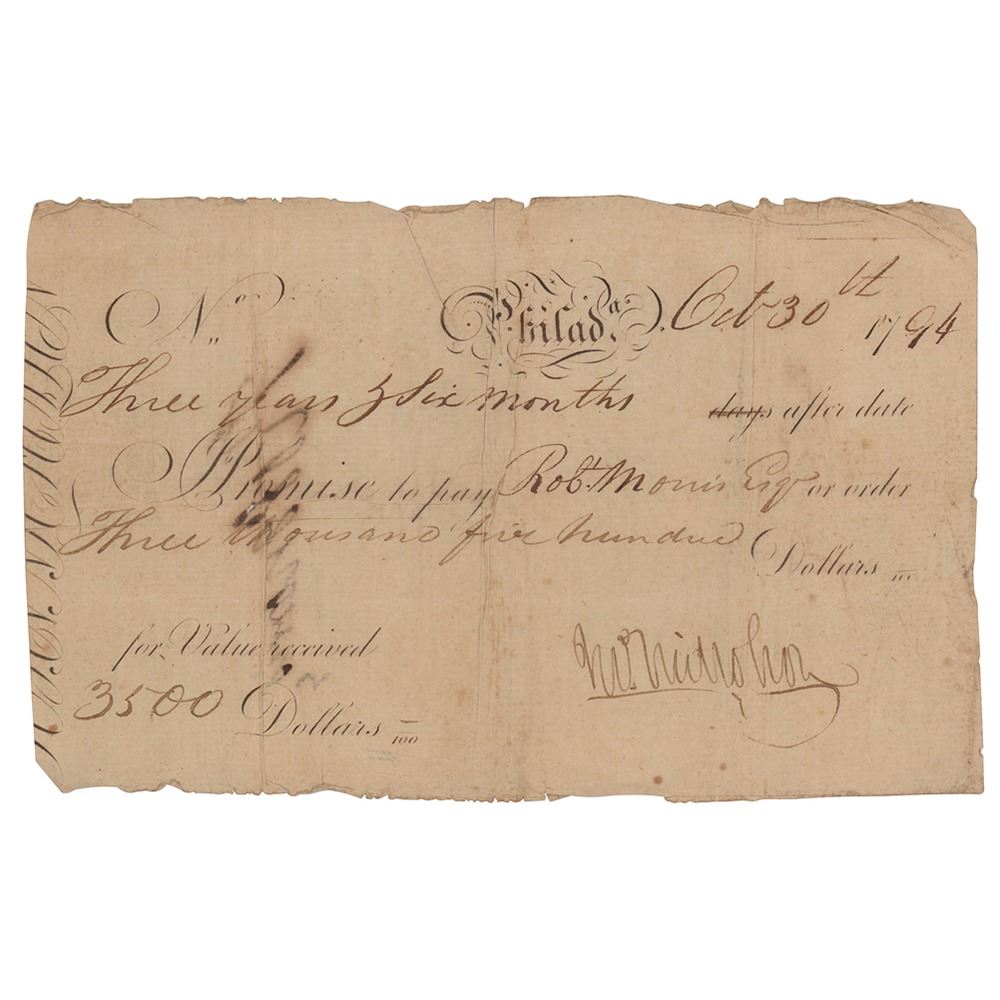 No. Philada. Oct 30th 1794
Three years & Six months days after date
I Promise to pay Robt. Morris Esqr or order
Three thousand five hundred Dollars /100
for Value received
3500 Dollars /100
Jno. Nicholson